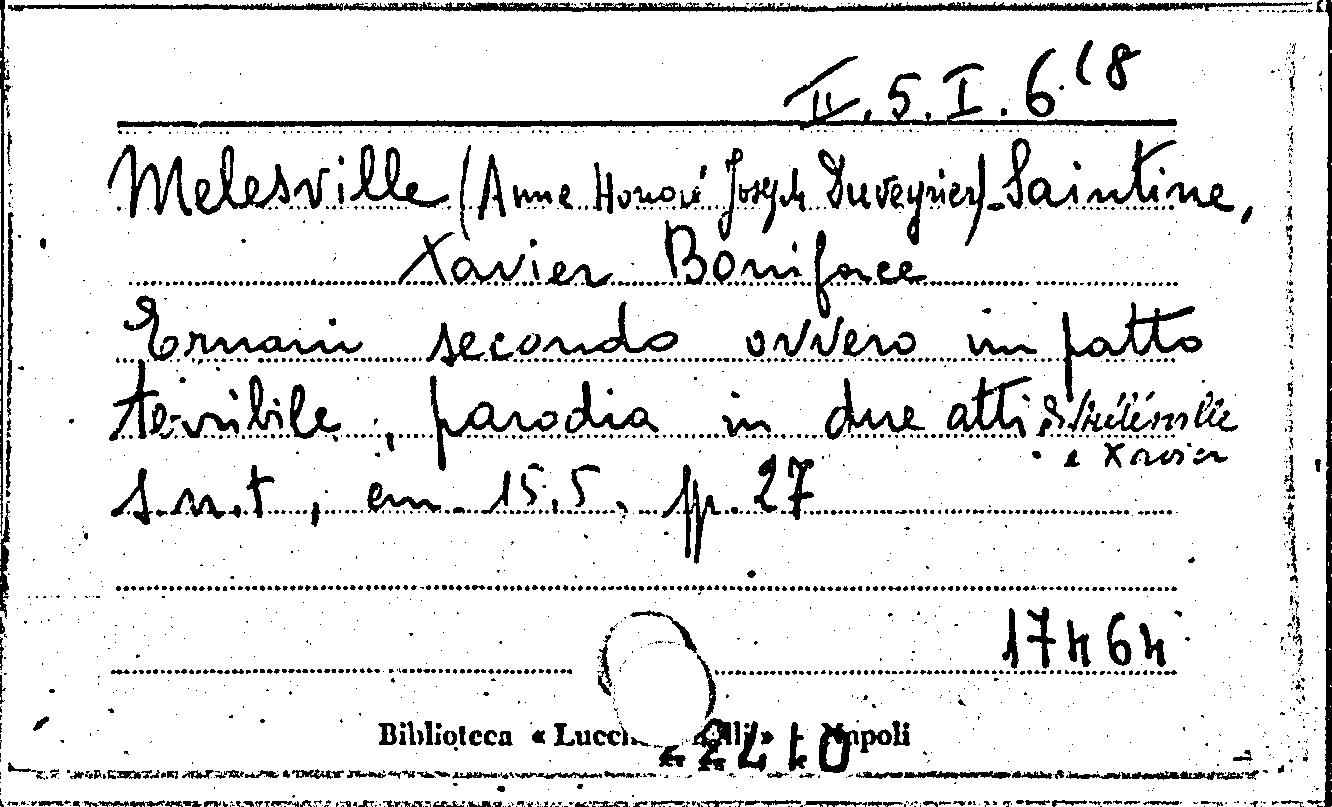 II.5.I.6.(8
Melesville (Anne Honoré Joseph Duveyrier)-Saintine,
Xavier Boniface
Ernani secondo ovvero un patto
terribile, parodia in due atti di Mélésville
e Xavier
s.n.t, cm. 15,5. pp. 27
17464
Biblioteca « » Napoli